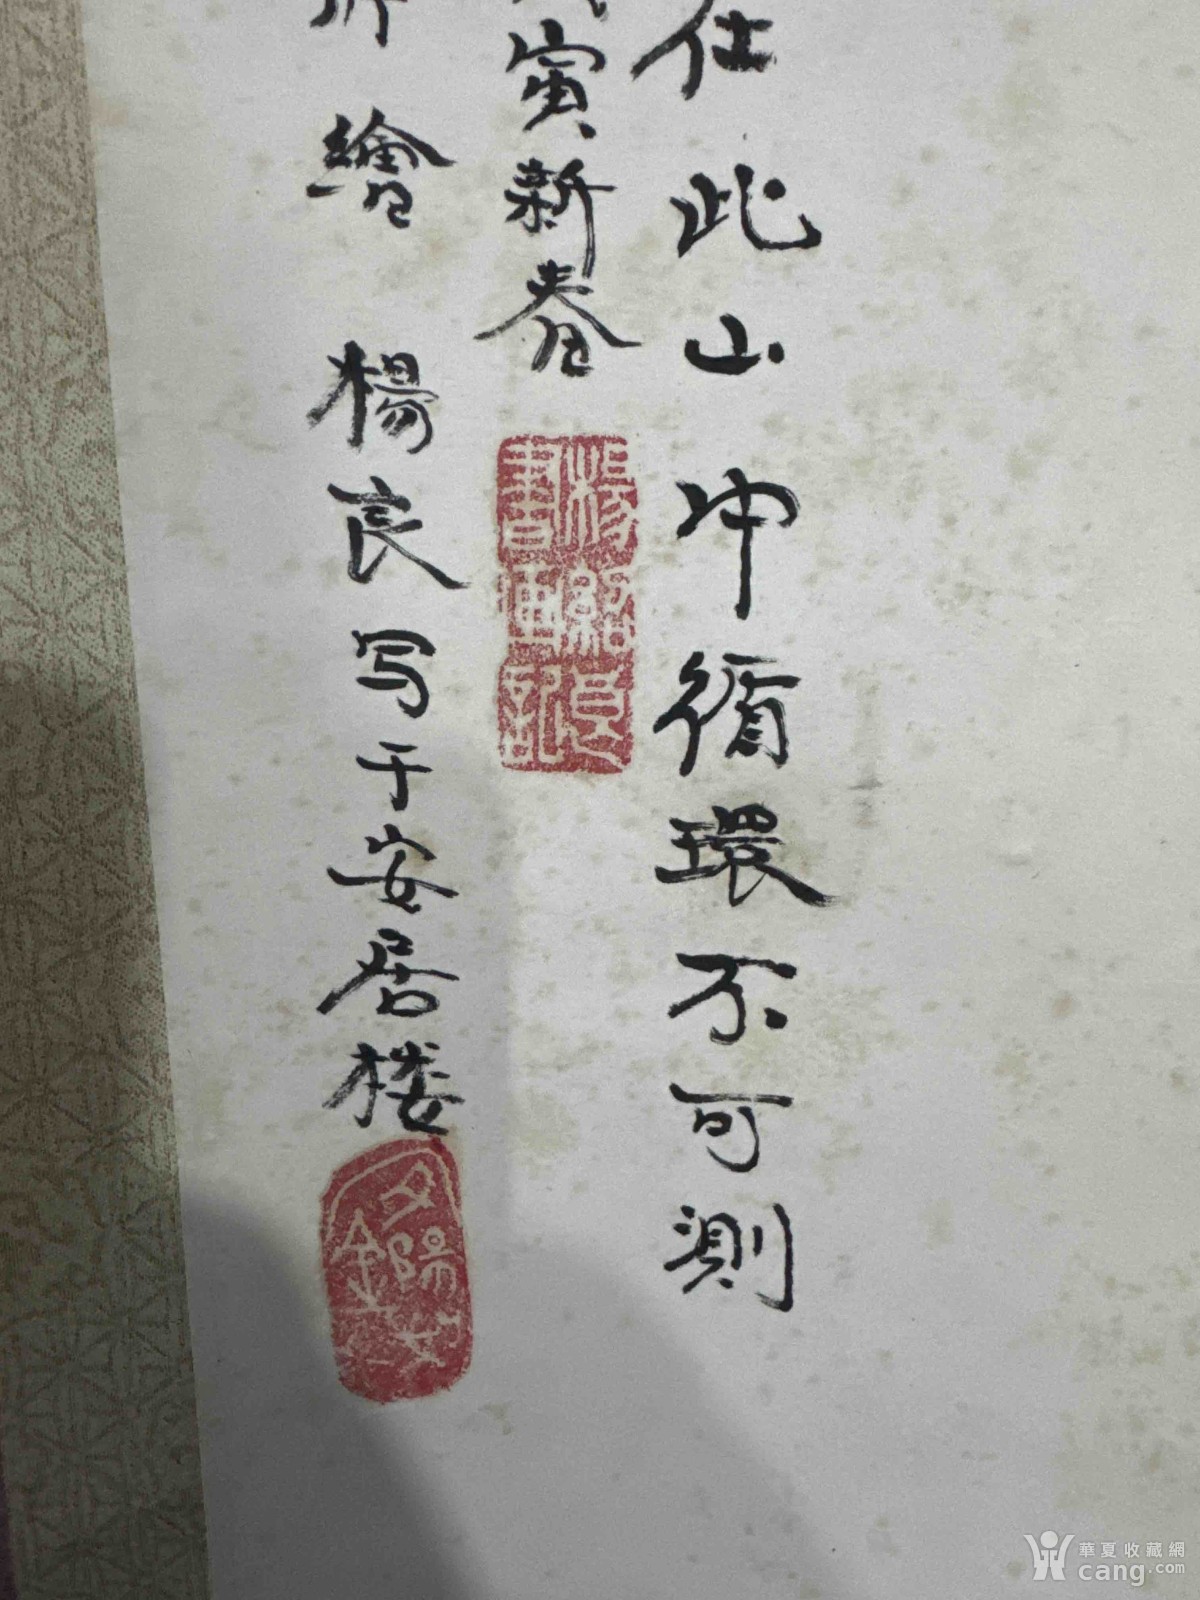 仕此山中循環不可測
寅新春
楊紹良書畫記
繪 楊良写于安居楼
夕陽
華夏收藏網
cang.com